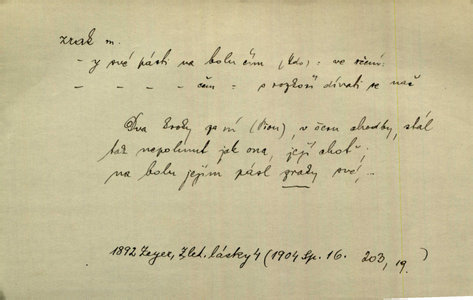 zrak m.
- y své pásti na bolu čím (kdo) = ve rčení:
- - - - čem = s rozkoší dívati se naň
Dva kroky za ní (Irou), v čeru chodby, stál
tak nepohnut jak ona, její choť;
na bolu jejím pásl zraky své, -
1892 Zeyer, Z let. lásky 4 (1904 Sp. 16. 203, 19.)